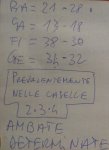 BA = 21-28.
GA = 13-18
FI = 38-30
GE = 34-32
PREVALENTEMENTE
NELLE CASELLE
2-3-4
AMBATE
DETERMINATE